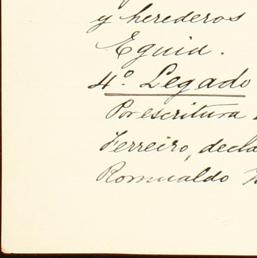 y herederos
Eguia.
4º Legado
Por escritura
Ferreiro, decla
Romualdo